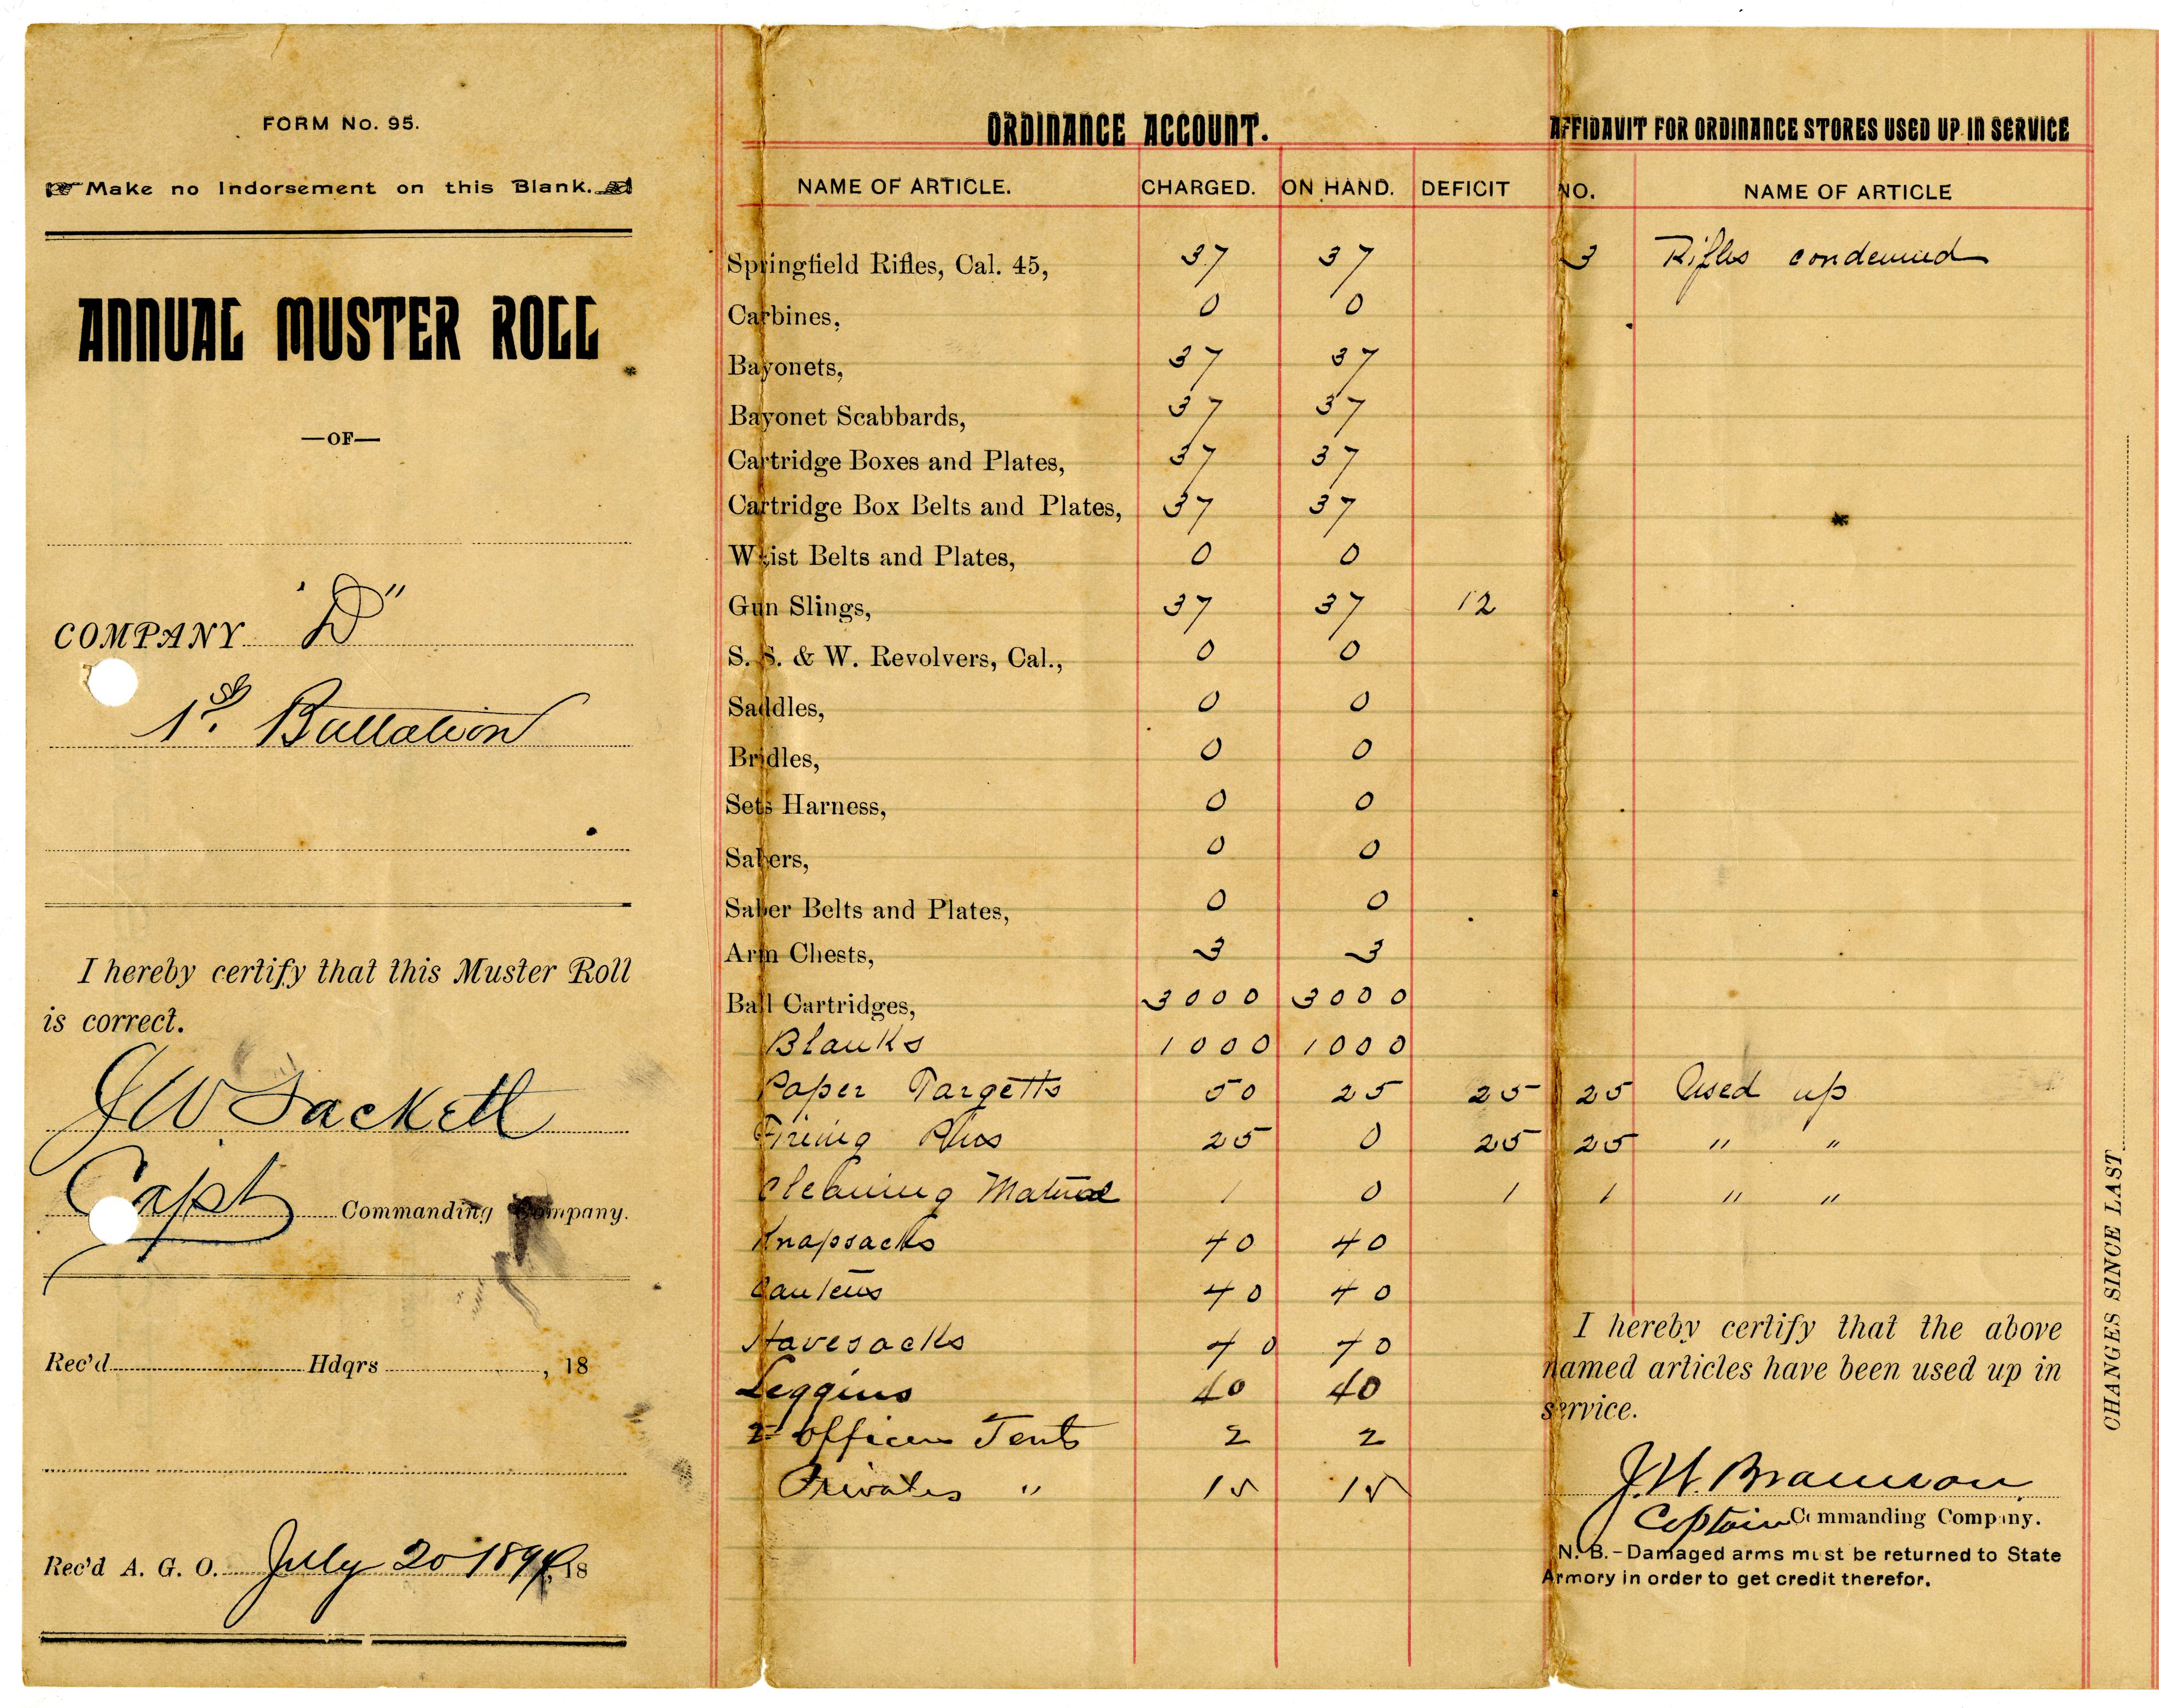 FORM No. 95.
Make no Indorsement on this Blank.
ANNUAL MUSTER ROLL
—OF—
COMPANY "D"
1st. Battalion
I hereby certify that this Muster Roll
is correct.
J W Sackett
Capt Commanding Company.
Rec'd Hdqrs , 18
Rec'd A. G. O. July 20 1894, 18
ORDINANCE ACCOUNT.
NAME OF ARTICLE. CHARGED. ON HAND. DEFICIT
Springfield Rifles, Cal. 45, 37 37
Carbines, 0 0
Bayonets, 37 37
Bayonet Scabbards, 37 37
Cartridge Boxes and Plates, 37 37
Cartridge Box Belts and Plates, 37 37
Waist Belts and Plates, 0 0
Gun Slings, 37 37 12
S. S. & W. Revolvers, Cal., 0 0
Saddles, 0 0
Bridles, 0 0
Sets Harness, 0 0
Sabers, 0 0
Saber Belts and Plates, 0 0
Arm Chests, 3 3
Ball Cartridges, 3000 3000
Blanks 1000 1000
Paper Targetts 50 25 25
Firing Pins 25 0 25
Cleaning Material 1 0 1
Knapsacks 40 40
Canteens 40 40
Havesacks 40 40
Leggins 40 40
2 Officers Tents 2 2
Privates " 15 15
AFFIDAVIT FOR ORDINANCE STORES USED UP IN SERVICE
NO. NAME OF ARTICLE
3 Rifles condemned
25 Used up
25 " "
1 " "
I hereby certify that the above
named articles have been used up in
service.
J. W. Brannon
Captain Commanding Company.
N. B.—Damaged arms must be returned to State
Armory in order to get credit therefor.
CHANGES SINCE LAST